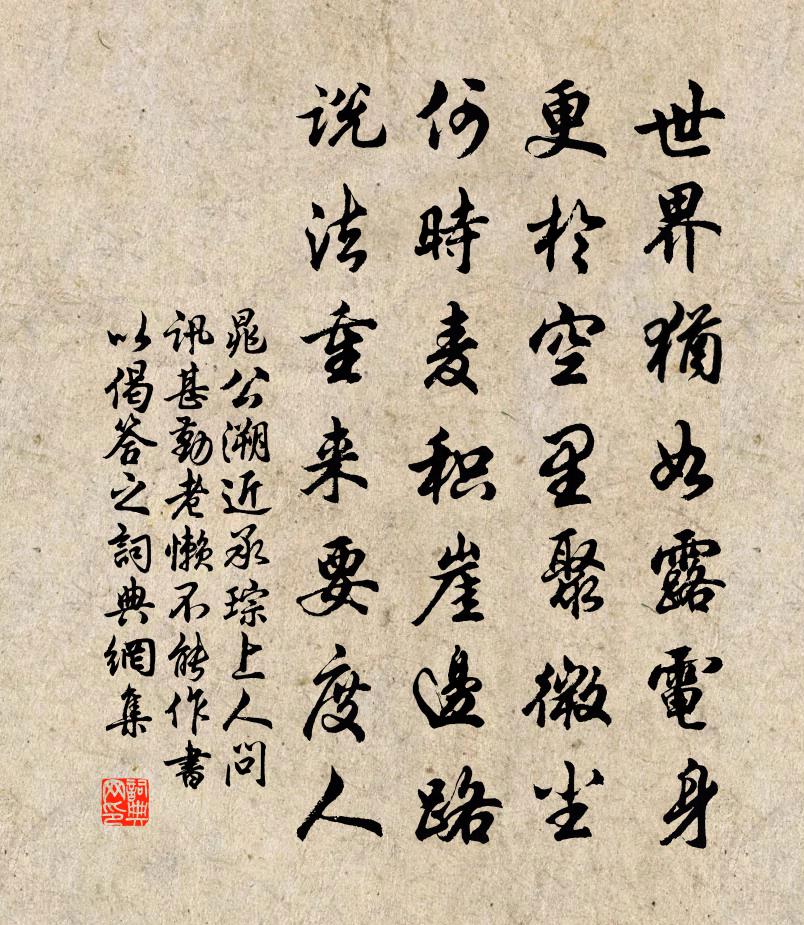 世界猶如露電身
更於空里聚微尘
何時麦积崖邊路
说法重来要度人
晁公溯近承琮上人問
讯甚勤老懒不能作書
以偈答之詞典網集
詞典网印